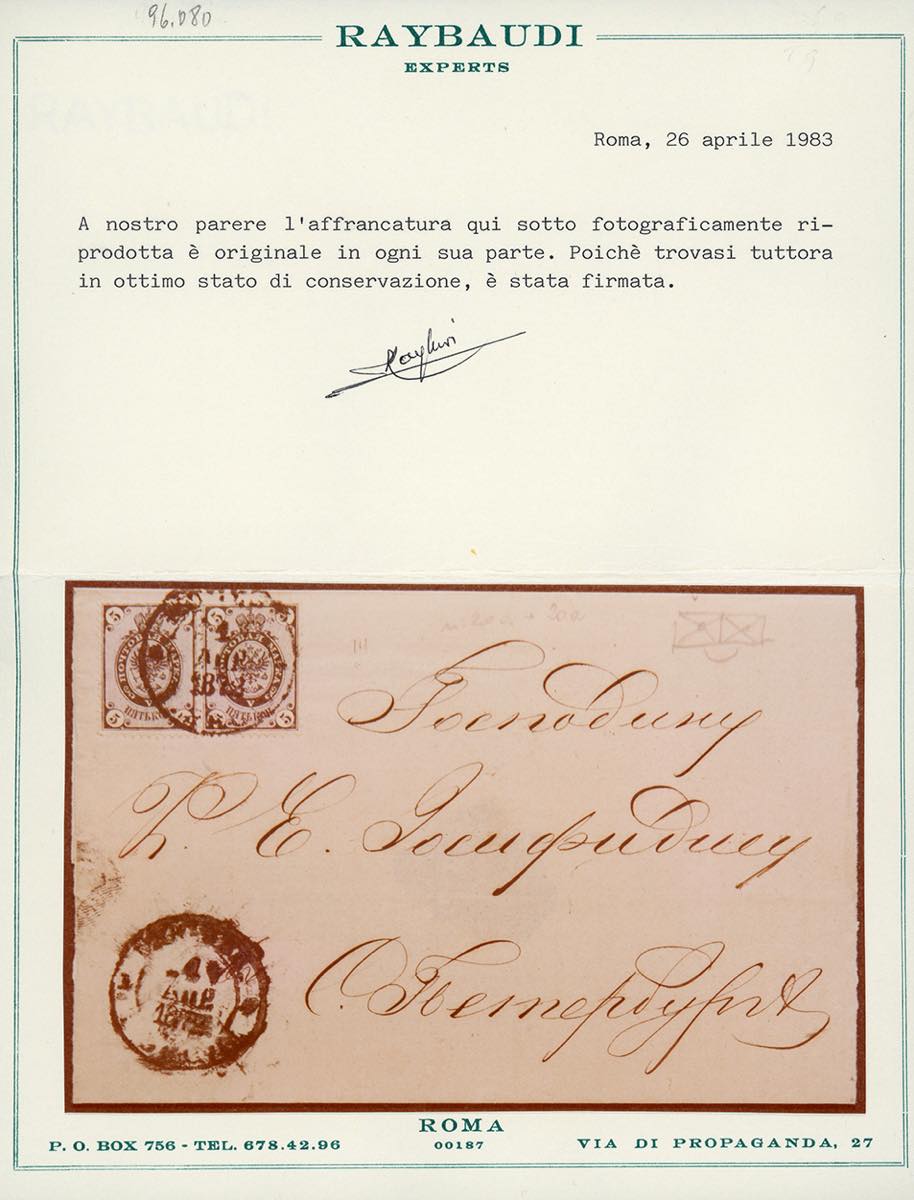 96.080
RAYBAUDI
EXPERTS
Roma, 26 aprile 1983
A nostro parere l'affrancatura qui sotto fotograficamente ri-
prodotta è originale in ogni sua parte. Poichè trovasi tuttora
in ottimo stato di conservazione, è stata firmata.
5 5 5 5
5 5
Господину
Е.
С. Петербургъ
АПР
ROMA
00187
P. O. BOX 756 - TEL. 678.42.96
VIA DI PROPAGANDA, 27